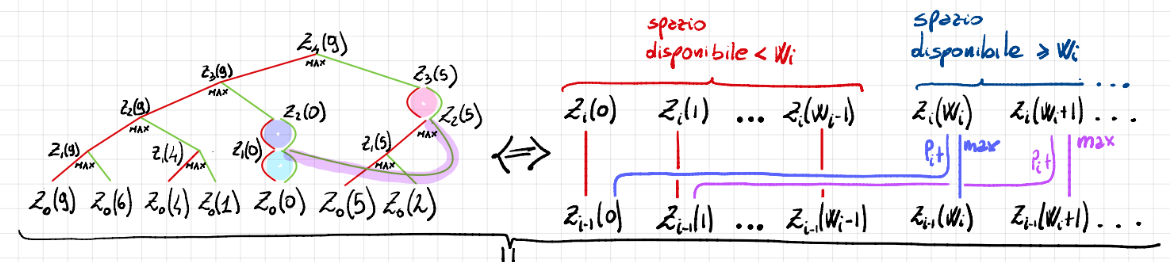 Z₄(9)
MAX
Z₃(9)
MAX
Z₃(5)
Z₂(9)
MAX
Z₂(0)
Z₂(5)
MAX
Z₁(9)
MAX
Z₁(4)
MAX
Z₁(0)
Z₁(5)
MAX
Z₀(9) Z₀(6) Z₀(4) Z₀(1) Z₀(0) Z₀(5) Z₀(2)
⇔
spazio
disponibile < Wᵢ
spazio
disponibile ≥ Wᵢ
Zᵢ(0) Zᵢ(1) ... Zᵢ(Wᵢ-1) Zᵢ(Wᵢ) Zᵢ(Wᵢ+1) ...
Pᵢ+ max Pᵢ+ max
Zᵢ₋₁(0) Zᵢ₋₁(1) ... Zᵢ₋₁(Wᵢ-1) Zᵢ₋₁(Wᵢ) Zᵢ₋₁(Wᵢ+1) ...